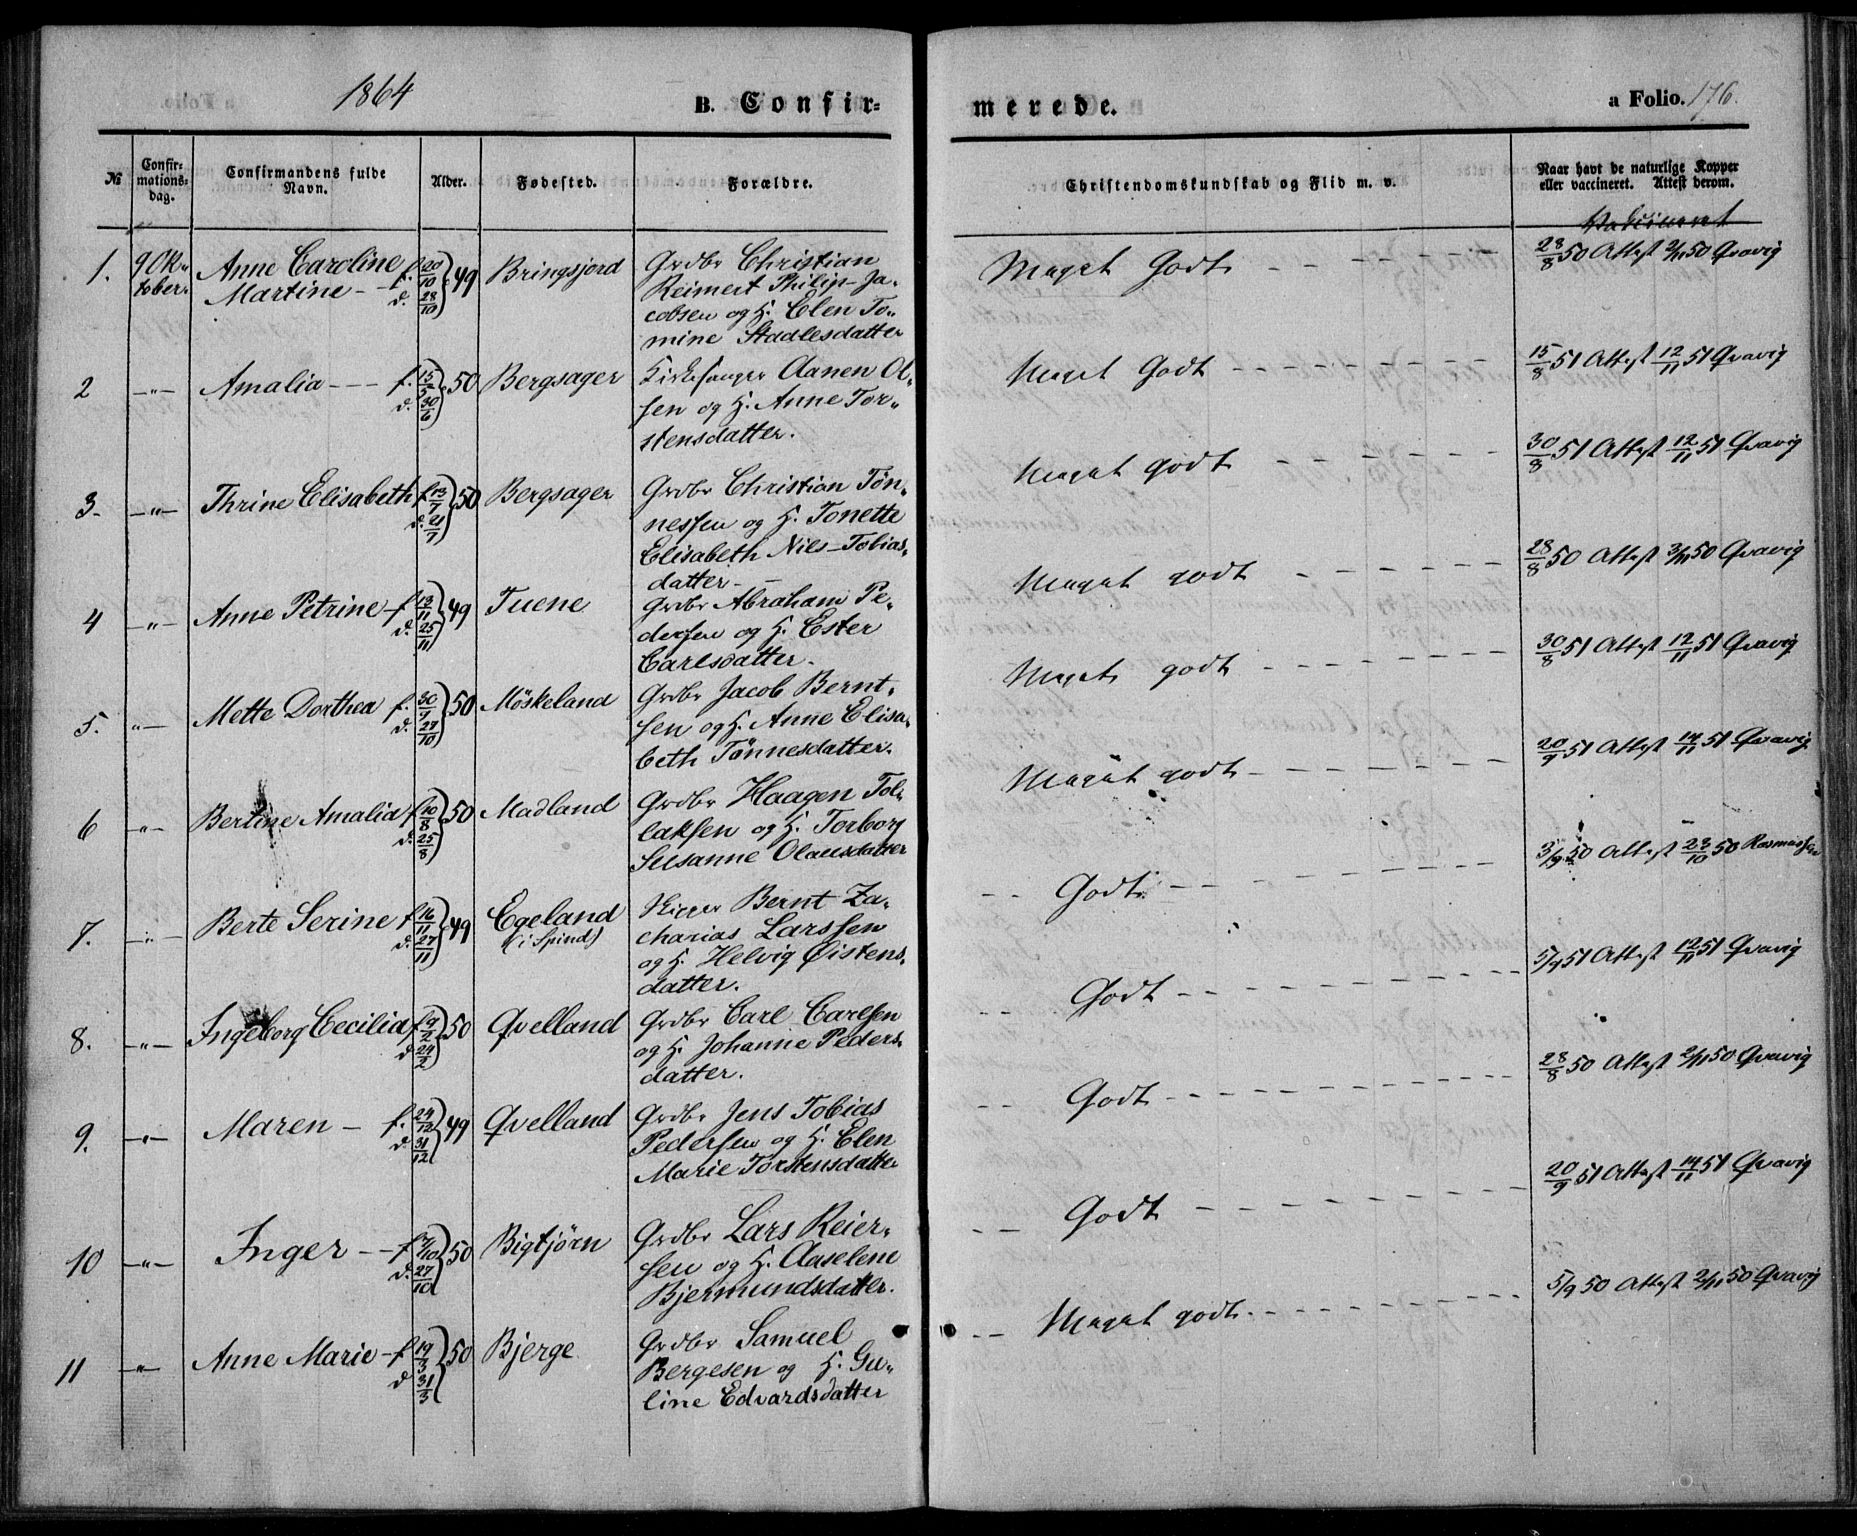 1864
B. Confir=
merede.
a Folio. 176.
№
Confir=
mations=
dag.
Confirmandens fulde
Navn.
Alder.
Fødested.
Forældre.
Christendomskundskab og Flid m. v.
Naar havt de naturlige Kopper
eller vaccineret. Attest derom.
1. 9 Ok- Anne Caroline f. 20/10 49 Bringsjord Grdbr Christian
tober. Martine d. 28/10 Reimert Philip Ja-
cobsen og H. Elen To-
mine Staalesdatter
Maget Godt
28/8 50 Attest 2/11 50 Qvavig
2 -"- Amalia f. 15/5 50 Bergsager Kirkesanger Aanen Ol-
d. 30/6 sen og H. Anne Tor-
stensdatter.
Maget Godt
15/8 51 Attest 12/11 51 Qvavig
3. -"- Thrine Elisabeth f. 13/7 50 Bergsager Grdbr Christian Tøn-
d. 21/7 nessen og H. Tonette
Elisabeth Nils-Tobias-
datter
Maget godt
30/8 51 Attest 12/11 51 Qvavig
4 -"- Anne Petrine f. 13/11 49 Tuene Grdbr Abraham Pe-
d. 25/11 dersen og H. Ester
Carlsdatter.
Maget godt
28/8 50 Attest 3/11 50 Qvavig
5. -"- Mette Dorthea f. 30/9 50 Møskeland Grdbr Jacob Bernt-
d. 27/10 sen og H. Anne Elisa-
beth Tønnesdatter.
Maget godt
30/8 51 Attest 12/11 51 Qvavig
6 -"- Bertine Amalia f. 10/8 50 Madland Grdbr Haagen Tol-
d. 25/8 laksen og H. Torborg
Susanne Olausdatter
Maget godt
20/9 51 Attest 14/11 51 Qvavig
7. -"- Berte Serine f. 16/11 49 Egeland Skipper Bernt Za-
d. 27/11 (i Spind) charias Larssen
og H. Helvig Øistens-
datter.
Godt
3/9 50 Attest 23/10 50 Rasmussen
8. -"- Ingeborg Cecilia f. 9/2 50 Qvelland Grdbr Carl Carlsen
d. 24/2 og H. Johanne Peders-
datter.
Godt
5/9 51 Attest 12/11 51 Qvavig
9. -"- Maren f. 24/12 49 Qvelland Grdbr Jens Tobias
d. 31/12 Pedersen og H. Elen
Marie Torstensdatter
Godt
28/8 50 Attest 2/11 50 Qvavig
10 -"- Inger f. 7/10 50 Bigtjørn Grdbr Lars Reier-
d. 27/10 sen og H. Aaselene
Bjermundsdatter.
Godt
20/9 51 Attest 14/11 51 Qvavig
11 -"- Anne Marie f. 19/3 50 Bjerge Grdbr Samuel
d. 31/3 Bergesen og H. Gu-
line Edvardsdatter
Maget godt
5/9 50 Attest 2/11 50 Qvavig